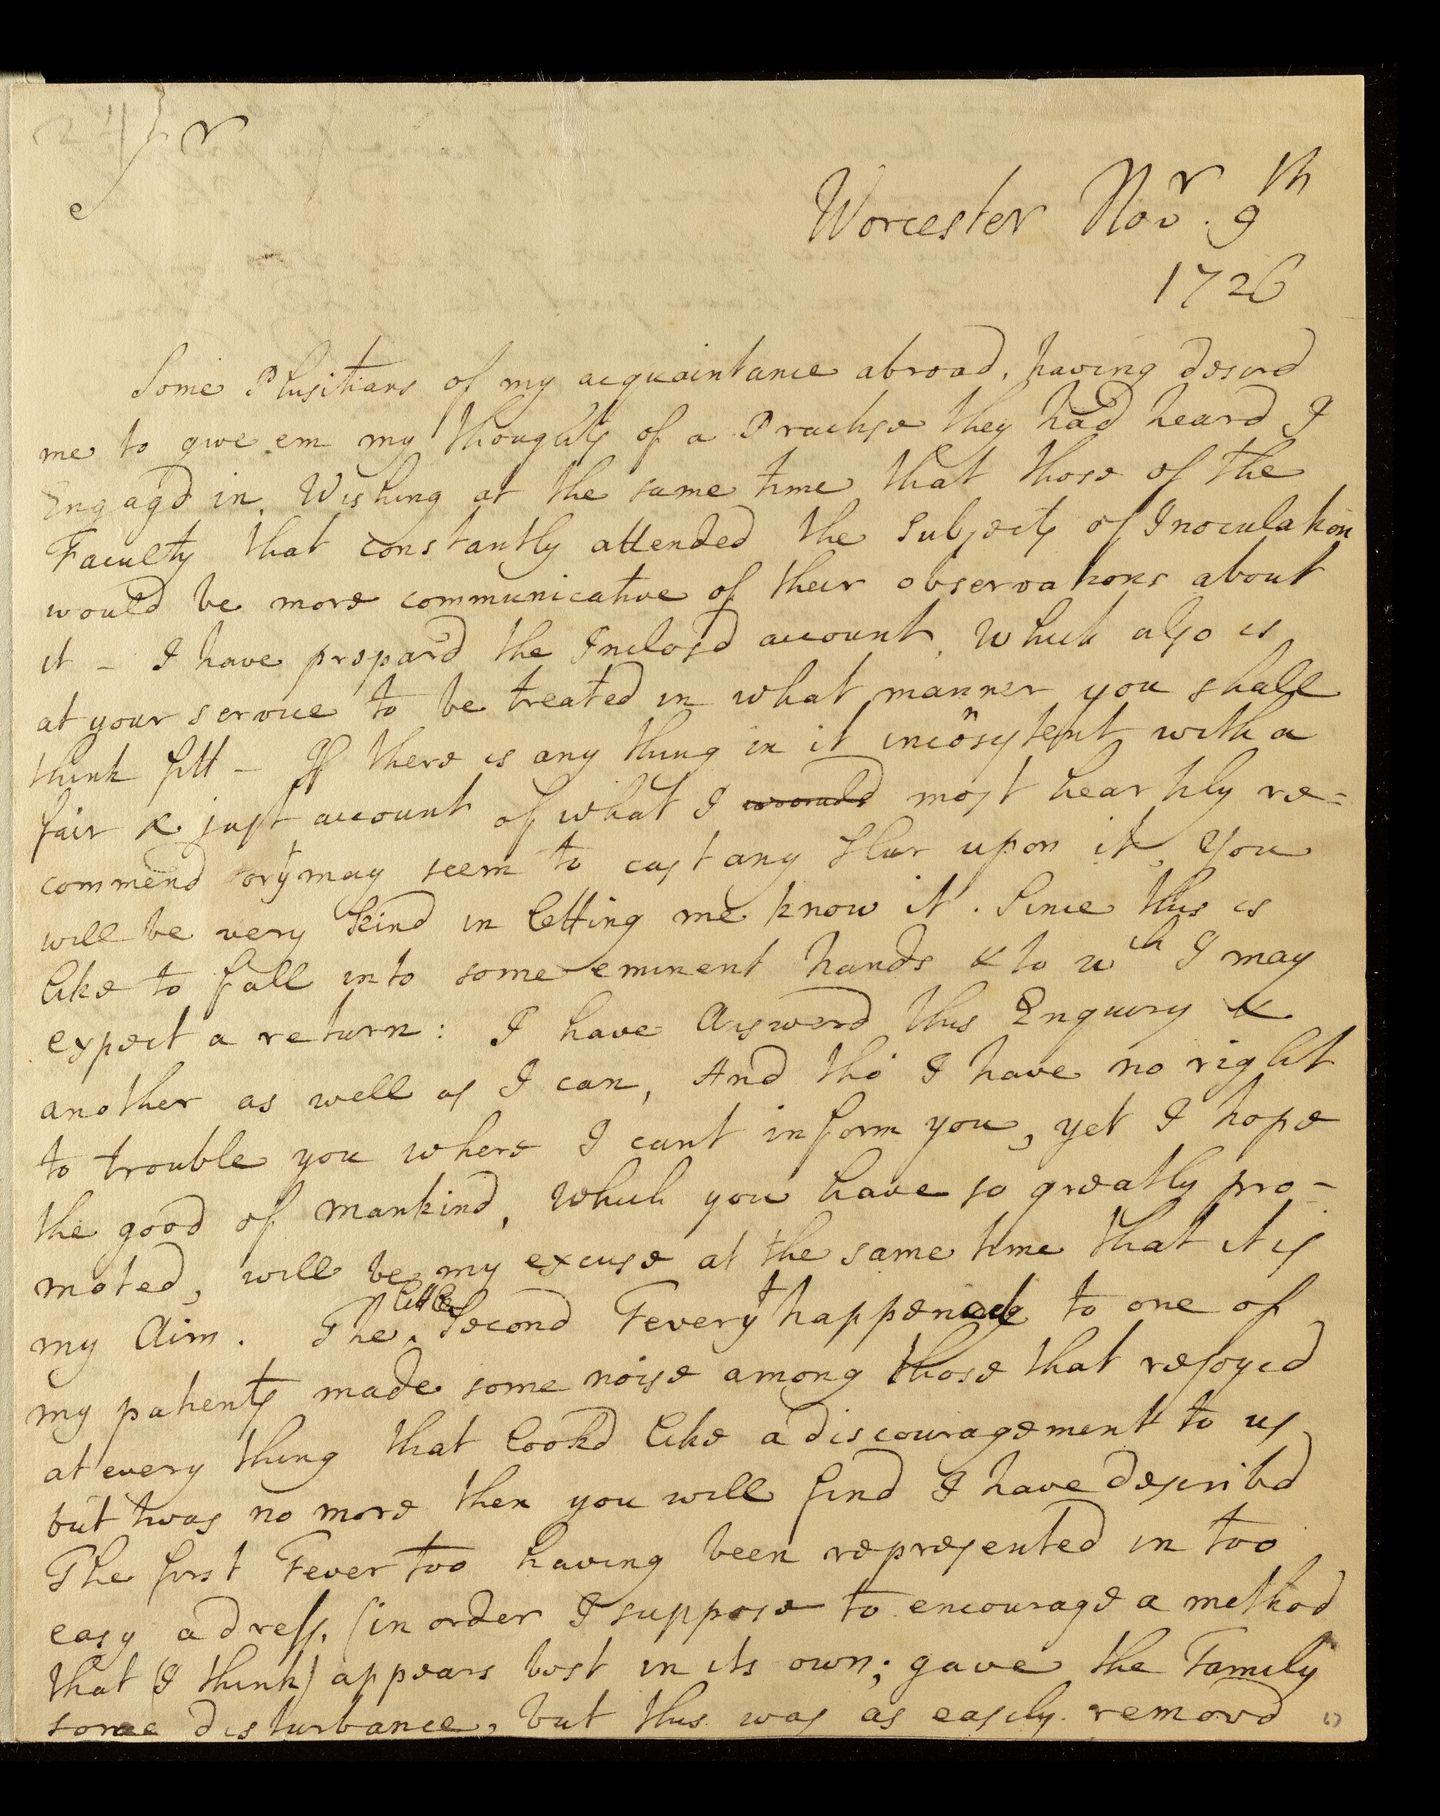 Sr
Worcester Novr. 9th
1726
Some Phisitians of my acquaintance abroad, having desird
me to give em my thoughts of a Practise they had heard I
Engagd in. Wishing at the same time that those of the
Faculty that constantly attended the Subjects of Inoculation
would be more communicative of their observations about
it - I have prepard the Inclosd account, which also is
at your service to be treated in what manner you shall
think fitt - If there is any thing in it inconsistent with a
fair & just account of what I would most heartily re=
commend or yt may seem to cast any Slur upon it, You
will be very kind in letting me know it. Since this is
like to fall into some eminent hands & to wch I may
expect a return: I have Answerd this Enquiry &
another as well as I can, And tho' I have no right
to trouble you where I cant inform you, yet I hope
the good of mankind, which you have so greatly pro-
moted, will be my excuse at the same time that it is
my Aim. The little Second Fever yt happened to one of
my patients made some noise among those that rejoyced
at every thing that lookd like a discouragement to us
but twas no more then you will find I have describd
The first Fever too having been represented in too
easy a dress, (in order I suppose to encourage a method
that (I think) appears best in its own; gave the Family
some disturbance, but this was as easily removd